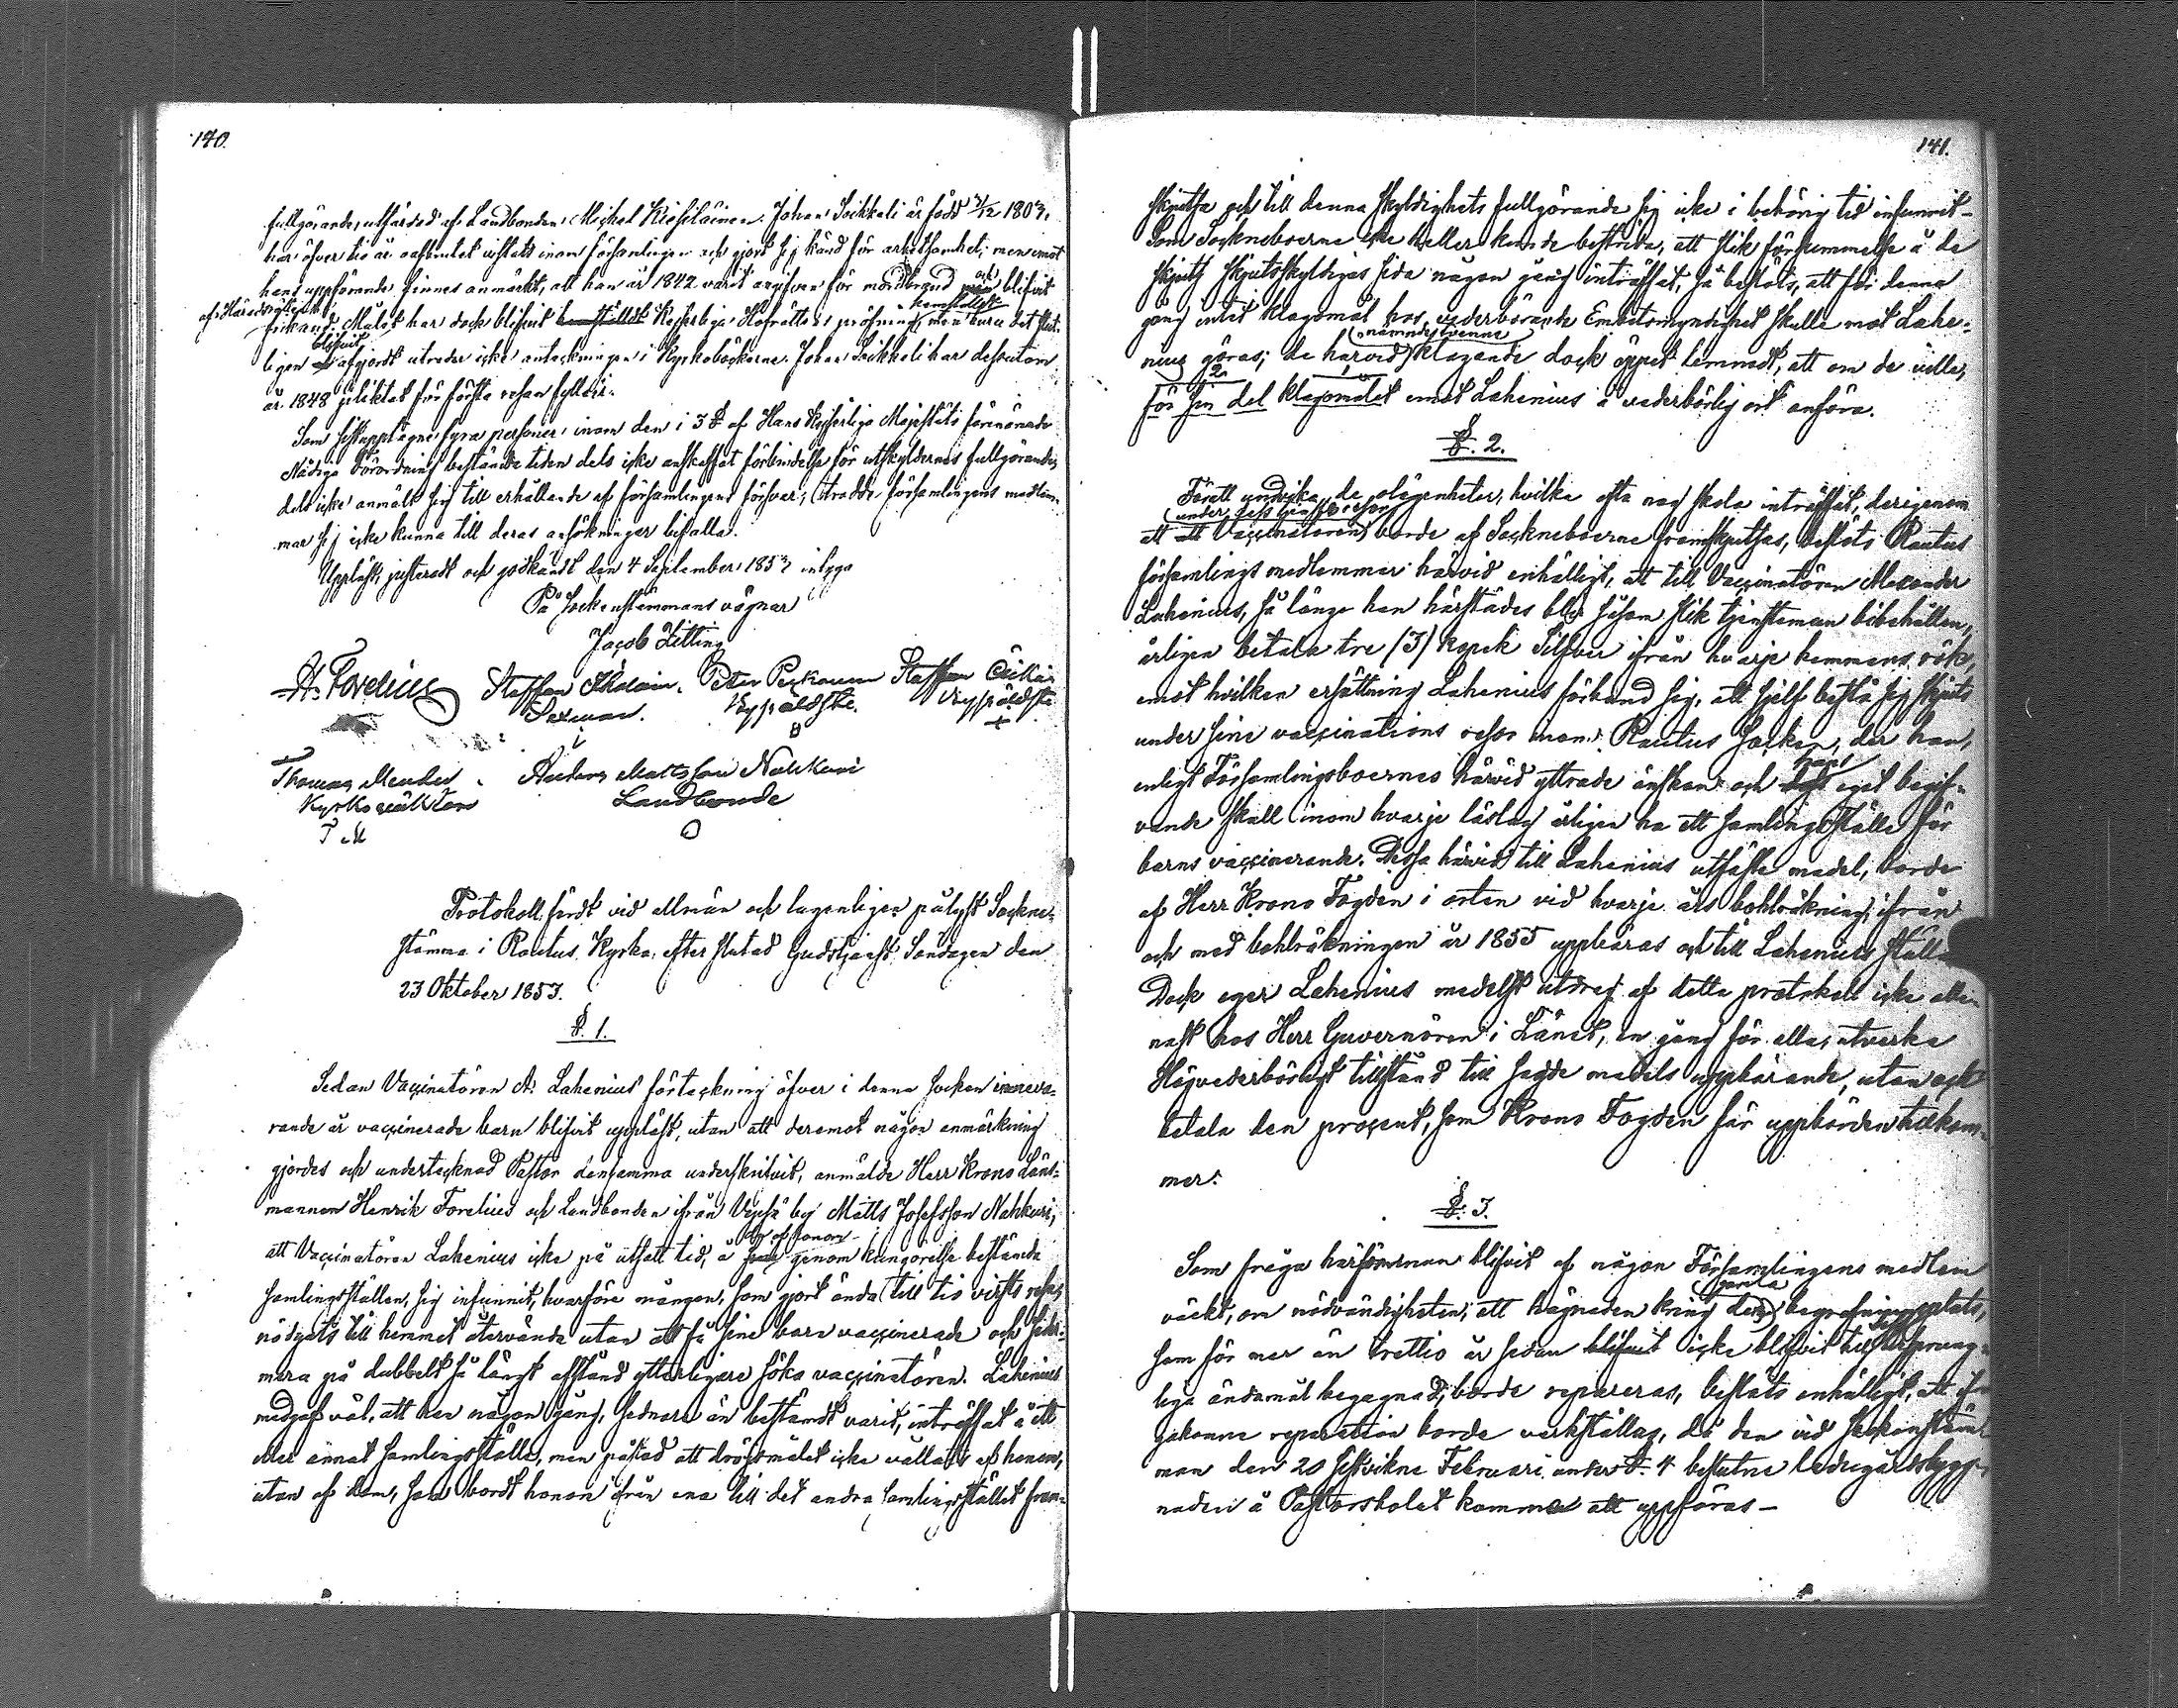 140.
fullgörande, utfärdad af Landbonden Michel Kiesiläinen. Johan Seikkeli är född 3/12 1803,
har öfver tio år oafbrutet vistats inom församlingen och gjort sig känd för arbetsamhet; men emot
hans uppförande finnes anmärkt, att han år 1842 varit angifven för mordbrand och blifvit
af Häradsrätten
fikand. Målet har dock blifvit Kejserliga Hofrättens pröfning hemstäldt men huru det slut-
ligen blifvit afgjordt utreder icke anteckningen i Kyrkoböckerne. Johan Seikkeli har dessutom
år 1848 pliktat för första resan fylleri.
Som sistupptagne fyra personer inom den i 3 § af Hans Kejserliga Majestäts förenämnde
Nådiga Förordning bestämda tiden dels icke anskaffat förbindelse för utskyldernes fullgörande,
dels icke anmält sig till erhållande af församlingens försvar, trodde församlingens medlem-
mar sig icke kunna till deras ansökningar bifalla.
Uppläst, justeradt och godkändt den 4 September 1853 intyga
På Sockenstämmans vägnar
Jacob Zitting
H. Forelius Staffan Ikäläin. Peter Peckanen Staffan
Sexman. Byjäldste. Byjäldste
Thomas Meuder Anders Mattsson Nahkuri
Kyrkovärden Landbonde
T M
Protokoll, fördt vid allmän och lagenligen pålyst Sockne-
stämma i Rautus Kyrka, efter slutad Gudstjenst Söndagen den
23 Oktober 1853.
§ 1.
Sedan Vaccinatören A. Lahenius' förteckning öfver i denna Socken innewa-
rande år vaccinerade barn blifvit uppläst, utan att deremot någon anmärkning
gjordes och undertecknad Pastor densamma underskrifvit, anmälde Herr Krono Läns-
mannen Henrik Forelius och Landbonden ifrån Vepsä by Matts Josefsson Nahkuri,
att Vaccinatören Lahenius icke på utsatt tid, å af honom genom kungörelse bestämda
samlingsställen, sig infunnit, hvarföre mången, som gjort ända till tio virsts resa,
nödgats till hemmet återvända utan att få sine barn vaccinerade och sedi-
mera på dubbelt så långt afstånd ytterligare söka vaccinatören. Lahenius
medgaf väl, att han någon gång, sednare än bestämdt varit, inträffat å ett
eller annat samlingsställe, men påstod att dröjsmålet icke vållats af honom,
utan af dem, som bordt honom ifrån ena till det andra samlingsstället fram-
141.
skjutsa och till denna skyldighets fullgörande sig icke i behörig tid infunnit –
Som Sockneboerne icke heller kunde bestrida, att slik försummelse å de
skjuts skjutsskyldiges sida någon gång inträffat, så beslöts, att för denna
gång intet klagomål hos vederbörande Embetsmyndighet skulle mot Lahe-
nius göras; de härvid nämnde tvenne klagande dock öppet lemnadt, att om de vilja,
för sin del klagomålet emot Lahenius å vederbörlig ort anföra.
§. 2.
Föratt undvika de olägenheter, hvilka ofta nog skola inträffat, derigenom
att Vaccinatören under dess tjensteresor borde af Sockneboerne framskjutsas, beslöts Rautus
församlings medlemmar härvid enhälligt, att till Vaccinatören Alexander
Lahenius, så länge han härstädes blir såsom slik tjensteman bibehållen,
årligen betala tre (3) kopek Silfver ifrån hvarje hemmans rök,
emot hvilken ersättning Lahenius förband sig, att sjelf bestå sig skjuts
under sine vaccinations resor inom Rautus Socken, der han,
enligt Församlingsboernes härvid yttrade önskan och hans eget begif-
vande skall inom hvarje läslag årligen ha ett samlingsställe för
barns vaccinerande. Dessa härvid till Lahenius utfäste medel, borde
af Herr Krono Fogden i orten vid hvarje års bohlräkning, ifrån
och med bohlräkningen år 1855 uppbäras och till Lahenius ställas
Dock eger Lahenius medelst utdrag af detta protokoll icke alle-
nast hos Herr Guvernören i Länet, en gång för alla, utverka
Högvederbörligt tillstånd till sagde medels uppbärande, utan och
betala den procent, som Krono Fogden för uppbörden tillkom-
mer.
§. 3.
Som fråga härförinnan blifvit af någon Församlingens medlem
väckt, om nödvändigheten, att hägnaden kring den gamla begrafningsplats,
som för mer än trettio år sedan icke blifvit till dess ursprung-
liga ändamål begagnad, borde repareras, beslöts enhälligt, att if-
gakomne reparation borde verkställas, då den vid sockenstäm-
man den 20 sistvikne Februari under §. 4 beslutne ledugårdsbygg-
naden å Pastorsbolet kommer att uppföras –